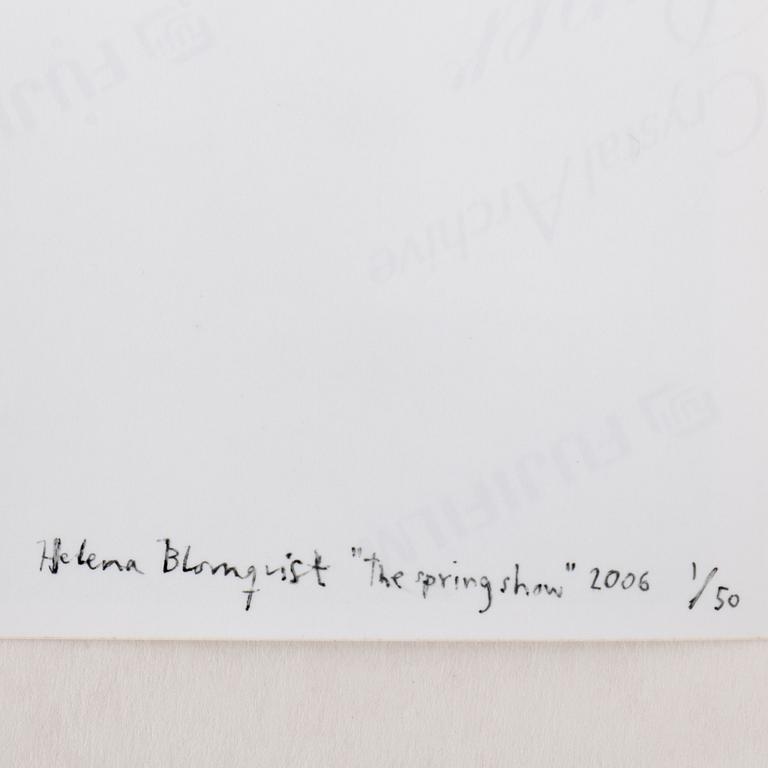 FUJI
Paper
Crystal Archive
FUJIFILM
Helena Blomqvist "The spring show" 2006 1/50